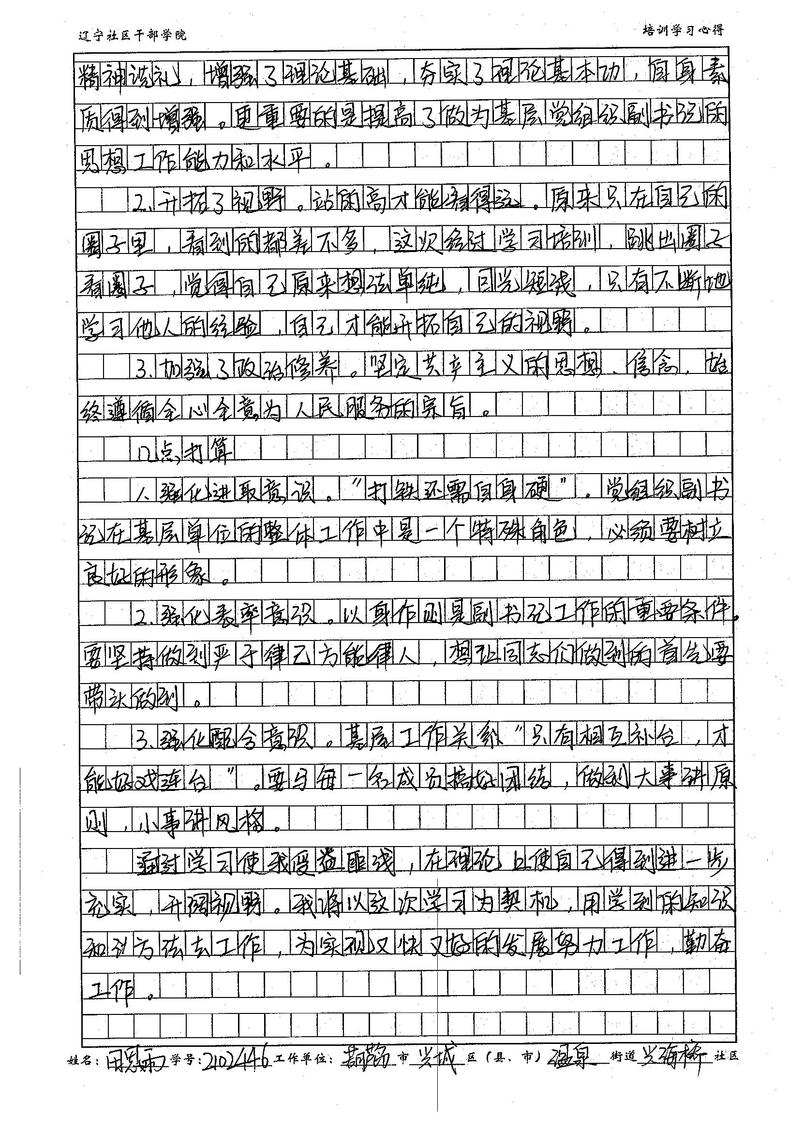 辽宁社区干部学院
培训学习心得
精神洗礼，增强了理论基础，夯实了理论基本功，自身素
质得到增强。更重要的是提高了做为基层党组织副书记的
思想工作能力和水平。
2.开拓了视野。站的高才能看得远。原来只在自己的
圈子里，看到的都差不多，这次经过学习培训，跳出圈子
看圈子，觉得自己原来想法单纯，目光短浅，只有不断地
学习他人的经验，自己才能开拓自己的视野。
3.加强了政治修养。坚定共产主义的思想、信念，始
终遵循全心全意为人民服务的宗旨。
几点打算
1.强化进取意识。“打铁还需自身硬”。党组织副书
记在基层单位的整体工作中是一个特殊角色，必须要树立
良好的形象。
2.强化表率意识。以身作则是副书记工作的重要条件。
要坚持做到严于律己方能律人，想让同志们做到的首先要
带头做到。
3.强化配合意识。基层工作关系“只有相互补台，才
能好戏连台”。要与每一名成员搞好团结，做到大事讲原
则，小事讲风格。
通过学习使我受益匪浅，在理论上使自己得到进一步
充实，开阔视野。我将以这次学习为契机，用学到的知识
和方法去工作，为实现又快又好的发展努力工作，勤奋
工作。
姓名：田思雨 学号：2102446 工作单位：葫芦岛 市 兴城 区（县、市） 温泉 街道 兴海桥 社区